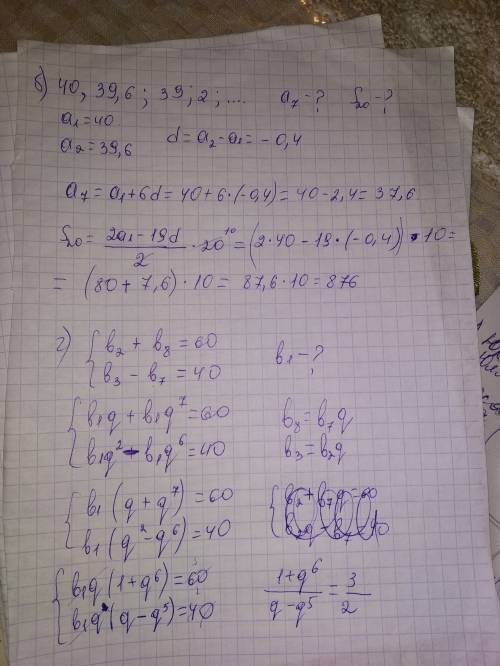 б) 40, 39,6; 39,2; .... a₇ - ? S₂₀ - ?
a₁ = 40
a₂ = 39,6 d = a₂ - a₁ = - 0,4
a₇ = a₁ + 6d = 40 + 6·(-0,4) = 40 - 2,4 = 37,6
S₂₀ = (2a₁ - 19d)/2 · 20¹⁰ = (2·40 - 19·(-0,4)) · 10 =
= (80 + 7,6) · 10 = 87,6 · 10 = 876
г) { b₂ + b₈ = 60 b₁ - ?
b₃ - b₇ = 40
{ b₁q + b₁q⁷ = 60 b₈ = b₇q
b₁q² - b₁q⁶ = 40 b₃ = b₂q
{ b₁(q + q⁷) = 60
b₁(q² - q⁶) = 40
{ b₁q(1 + q⁶) = 60 (1 + q⁶)/(q - q⁵) = 3/2
b₁q(q - q⁵) = 40